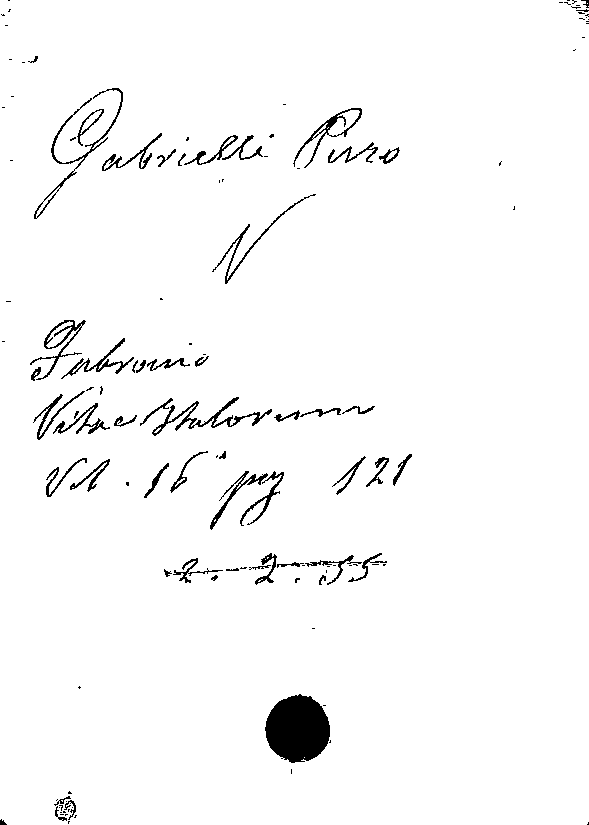 Gabrielli Pirro
V
Fabronio
Vitae Italorum
Vol. 16° pag 121
2. 2. 55